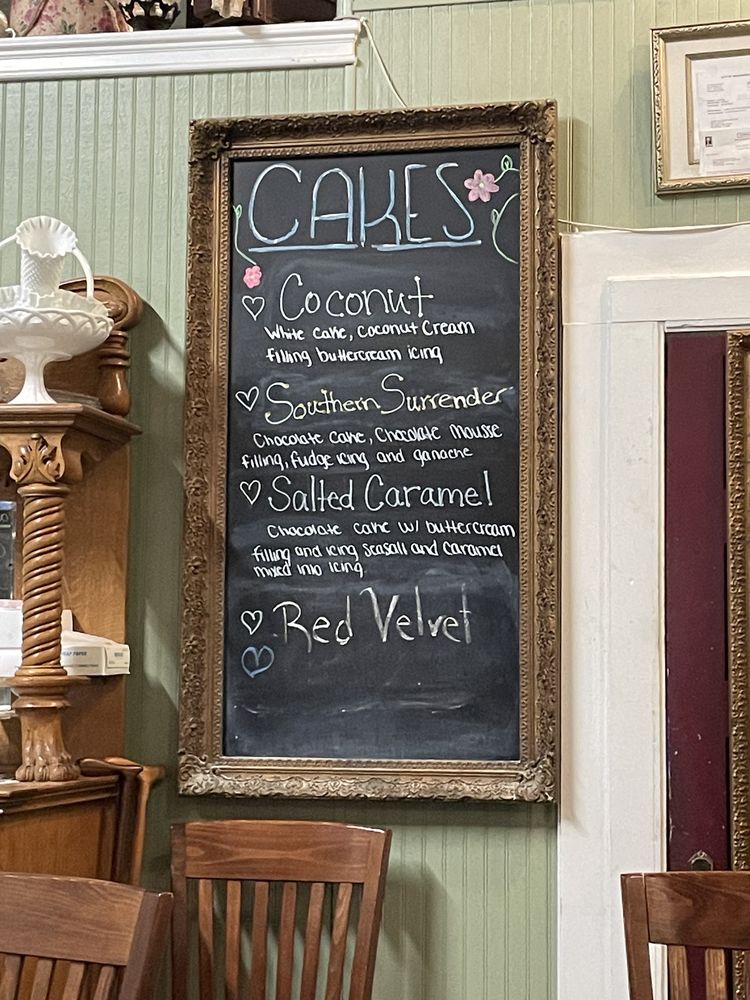 CAKES
Coconut
White cake, Coconut Cream
filling buttercream icing
Southern Surrender
Chocolate cake, Chocolate Mousse
filling, fudge icing and ganache
Salted Caramel
Chocolate cake w/ buttercream
filling and icing seasalt and caramel
mixed into icing.
Red Velvet